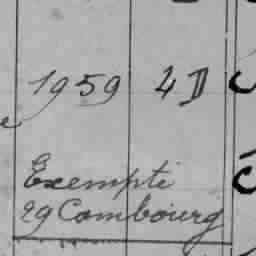 1959 4D
Exempté
29 Combourg